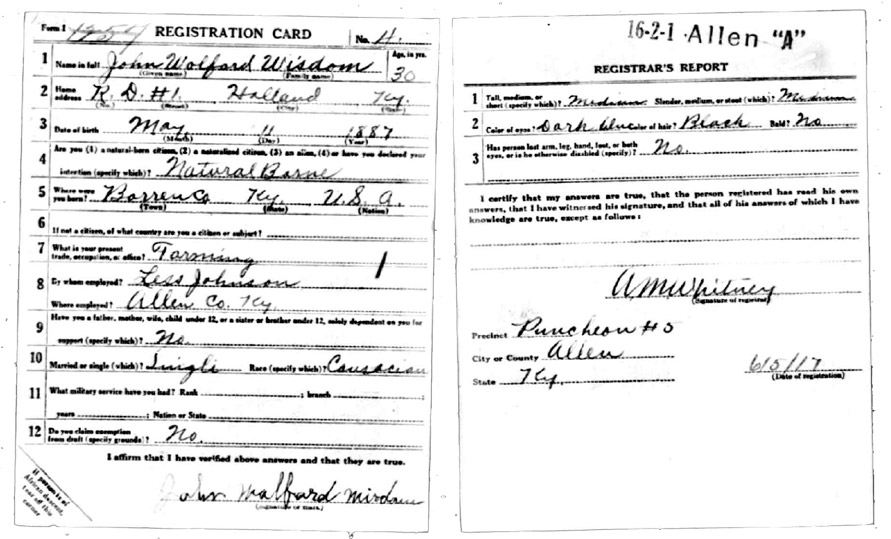 Form 1 REGISTRATION CARD No. 4.
1 Name in full John Wolfard Wisdom Age, in yrs. 30
(Given name) (Family name)
2 Home address R. D. #1. Holland Ky.
(No.) (Street) (City) (State)
3 Date of birth May 4 1887
(Month) (Day) (Year)
4 Are you (1) a natural-born citizen, (2) a naturalized citizen, (3) an alien, (4) or have you declared your
intention (specify which)? Natural Borne
5 Where were you born? Barren Co Ky. U. S. A.
(Town) (State) (Nation)
6 If not a citizen, of what country are you a citizen or subject?
7 What is your present trade, occupation, or office? Farming 1
8 By whom employed? Less Johnson
Where employed? Allen Co. Ky.
9 Have you a father, mother, wife, child under 12, or a sister or brother under 12, solely dependent on you for
support (specify which)? No.
10 Married or single (which)? Single Race (specify which)? Causacian
11 What military service have you had? Rank ; branch ;
years ; Nation or State
12 Do you claim exemption from draft (specify grounds)? No.
I affirm that I have verified above answers and that they are true.
John Walfard Wisdom
If person is of
African descent,
tear off this
corner
16-2-1 Allen "A"
REGISTRAR'S REPORT
1 Tall, medium, or short (specify which)? Medium Slender, medium, or stout (which)? Medium
2 Color of eyes? Dark blue Color of hair? Black Bald? No
3 Has person lost arm, leg, hand, foot, or both
eyes, or is he otherwise disabled (specify)? No.
I certify that my answers are true, that the person registered has read his own
answers, that I have witnessed his signature, and that all of his answers of which I have
knowledge are true, except as follows:
A M Whitney
(Signature of registrar)
Precinct Puncheon #5
City or County Allen
State Ky. 6/5/17
(Date of registration)